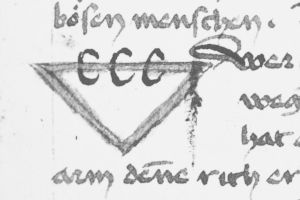 bösen menschen.
CCC Wer
weg
hat
arm dene rich er